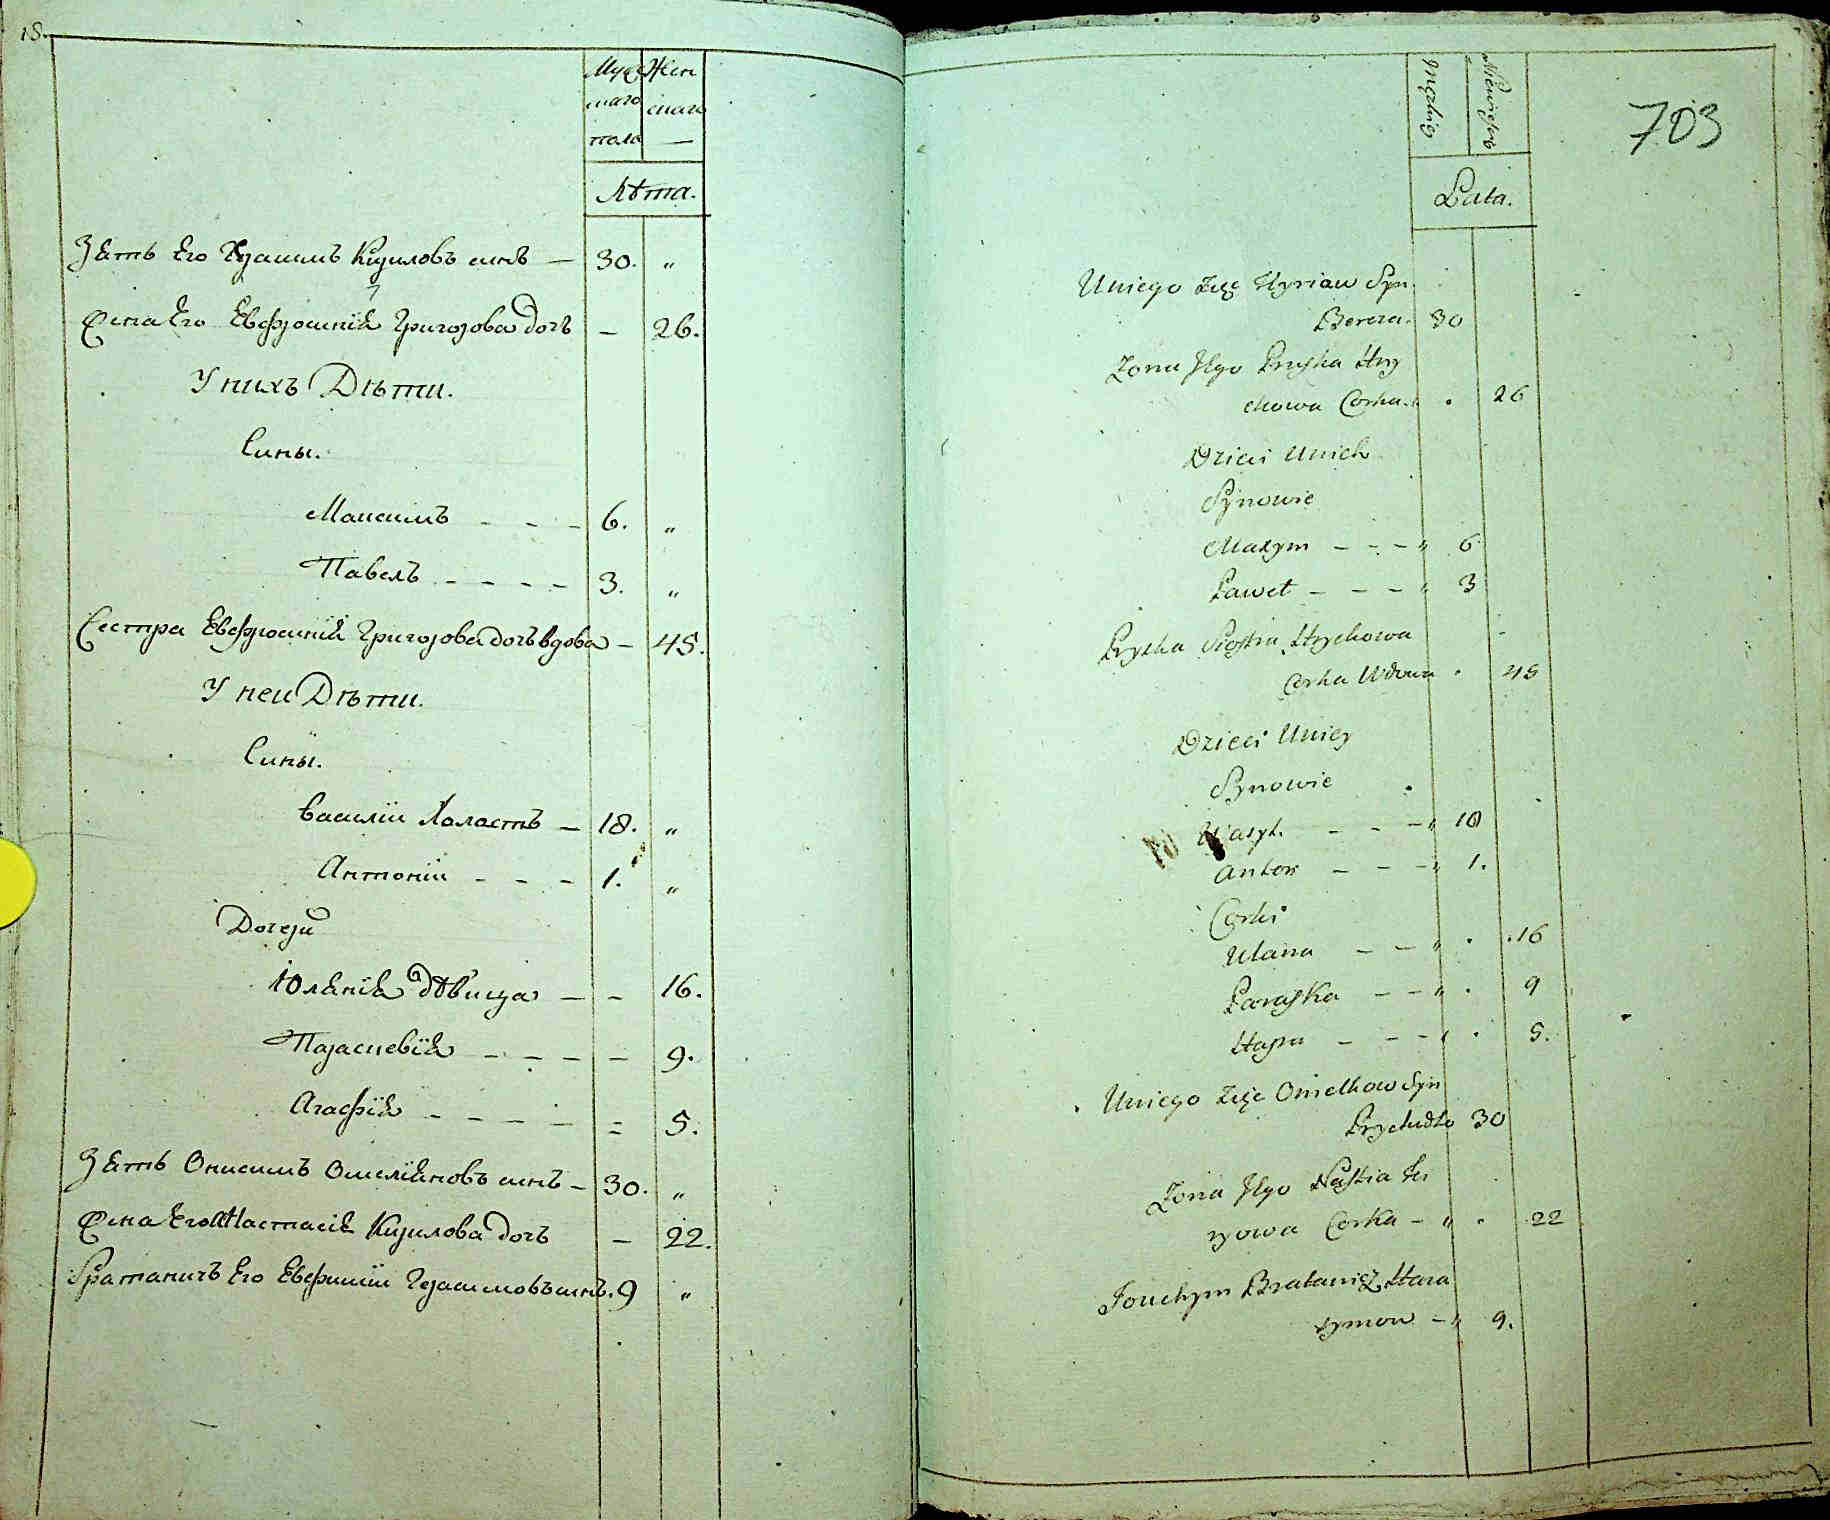 18.
Муже Жен
скаго скаго
пола —
Лѣта.
Зять Его Герасимъ Кириловъ сынъ — 30. „
Жена Его Евфросинія Григорова дочь — 26.
У нихъ Дѣти.
Сины.
Максимъ - - - 6. „
Павелъ - - - - 3. „
Сестра Евфросинія Григорова дочь вдова — 45.
У неи Дѣти.
Сины.
Василіи Холостъ — 18. „
Антоніи - - - 1. „
Дочери
Юлянія дѣвица — - 16.
Параскевія - - - - 9.
Агафія - - - - = 5.
Зять Онисимъ Омеляновъ сынъ - 30. „
Жена Его Настасія Кирилова дочь — 22.
Братаничъ Его Евфиміи Герасимовъ сынъ. 9 „
703
Męzkię Niewiesć
Lata.
Uniego Zięć Kyriow Syn
Bereza. 30
Zona Jego Pryska Hry
chowa Corka. . 26
Dzieci Unich
Synowie
Maxym - - - „ 6
Paweł - - - „ 3
Pryska Siostra Hrychowa
Corka Wdowa . 45
Dzieci Uniey
Synowie
Wasyl. - - - „ 18
Anton - - - „ 1.
Corki
Ulana - - „ . .16
Paraska - - „ . 9
Hapa - - - „ . 5.
Uniego Zięć Omelkow Syn
Prychodko 30
Zona Jego Nastia Ki
rylowa Corka - „ . 22
Jouchym Bratanicz Hara
symow - „ 9.